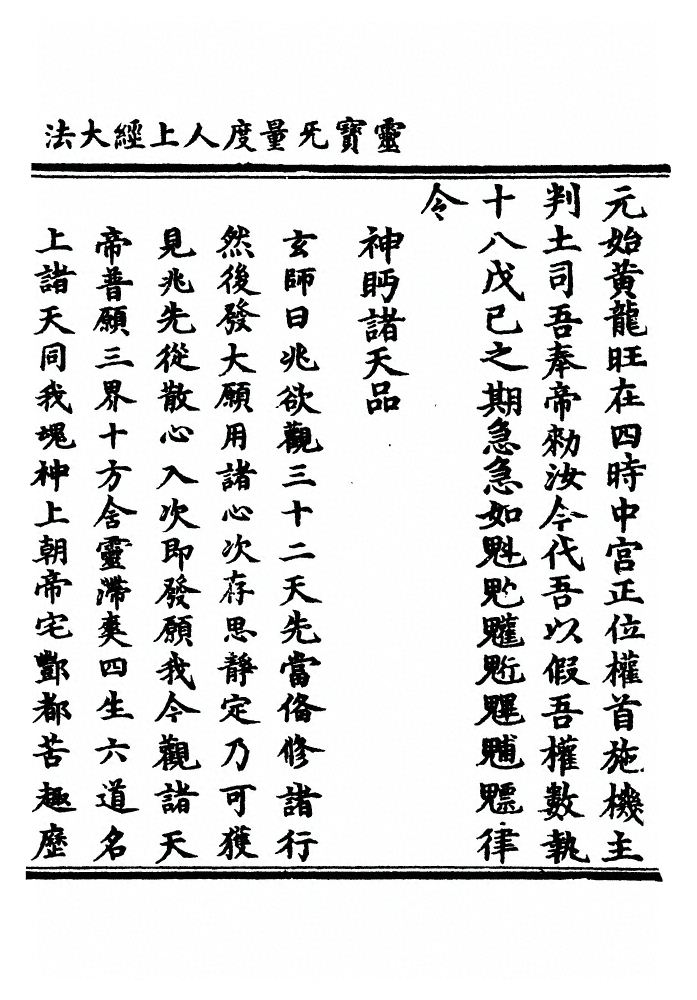 靈寶无量度人上經大法
元始黃龍旺在四時中宮正位權首施機主
判土司吾奉帝勑汝今代吾以假吾權數執
十八戊己之期急急如魁𩲃䰢魒𩳐𩳗魓律
令
神眄諸天品
玄師曰兆欲觀三十二天先當俻修諸行
然後發大願用諸心次存思靜定乃可獲
見兆先從散心入次即發願我今觀諸天
帝普願三界十方含靈滯爽四生六道名
上諸天同我魂神上朝帝宅酆都苦趣歷